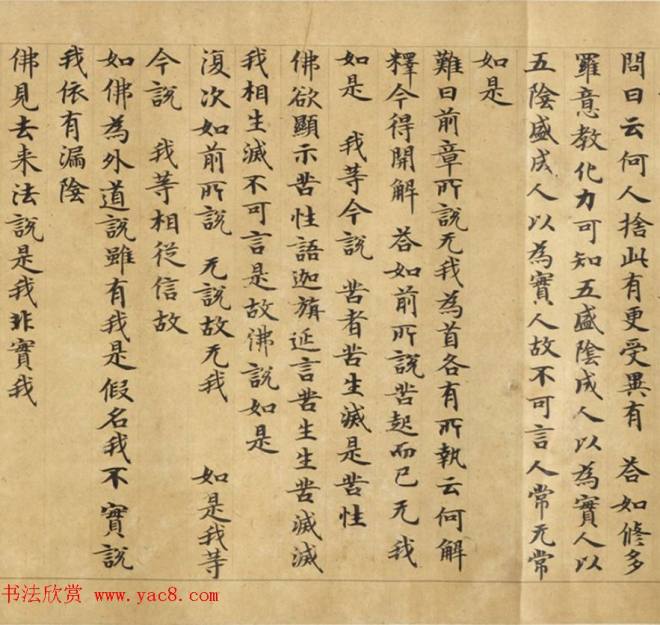 問曰云何人捨此有更受異有　荅如修多
羅意教化力可知五盛陰成人以為實人以
五陰盛成人以為實人故不可言人常无常
如是
難曰前章所說无我為首各有所執云何解
釋今得開解　荅如前所說苦起而已无我
如是　我等今說　苦者苦生滅是苦性
佛欲顯示苦性語迦旃延言苦生生苦滅滅
我相生滅不可言是故佛說如是
復次如前所說　无說故无我　如是我等
今說　我等相從信故
如佛為外道說雖有我是假名我不實說
我依有漏陰
佛見去来法說是我非實我
书法欣赏 www.yac8.com